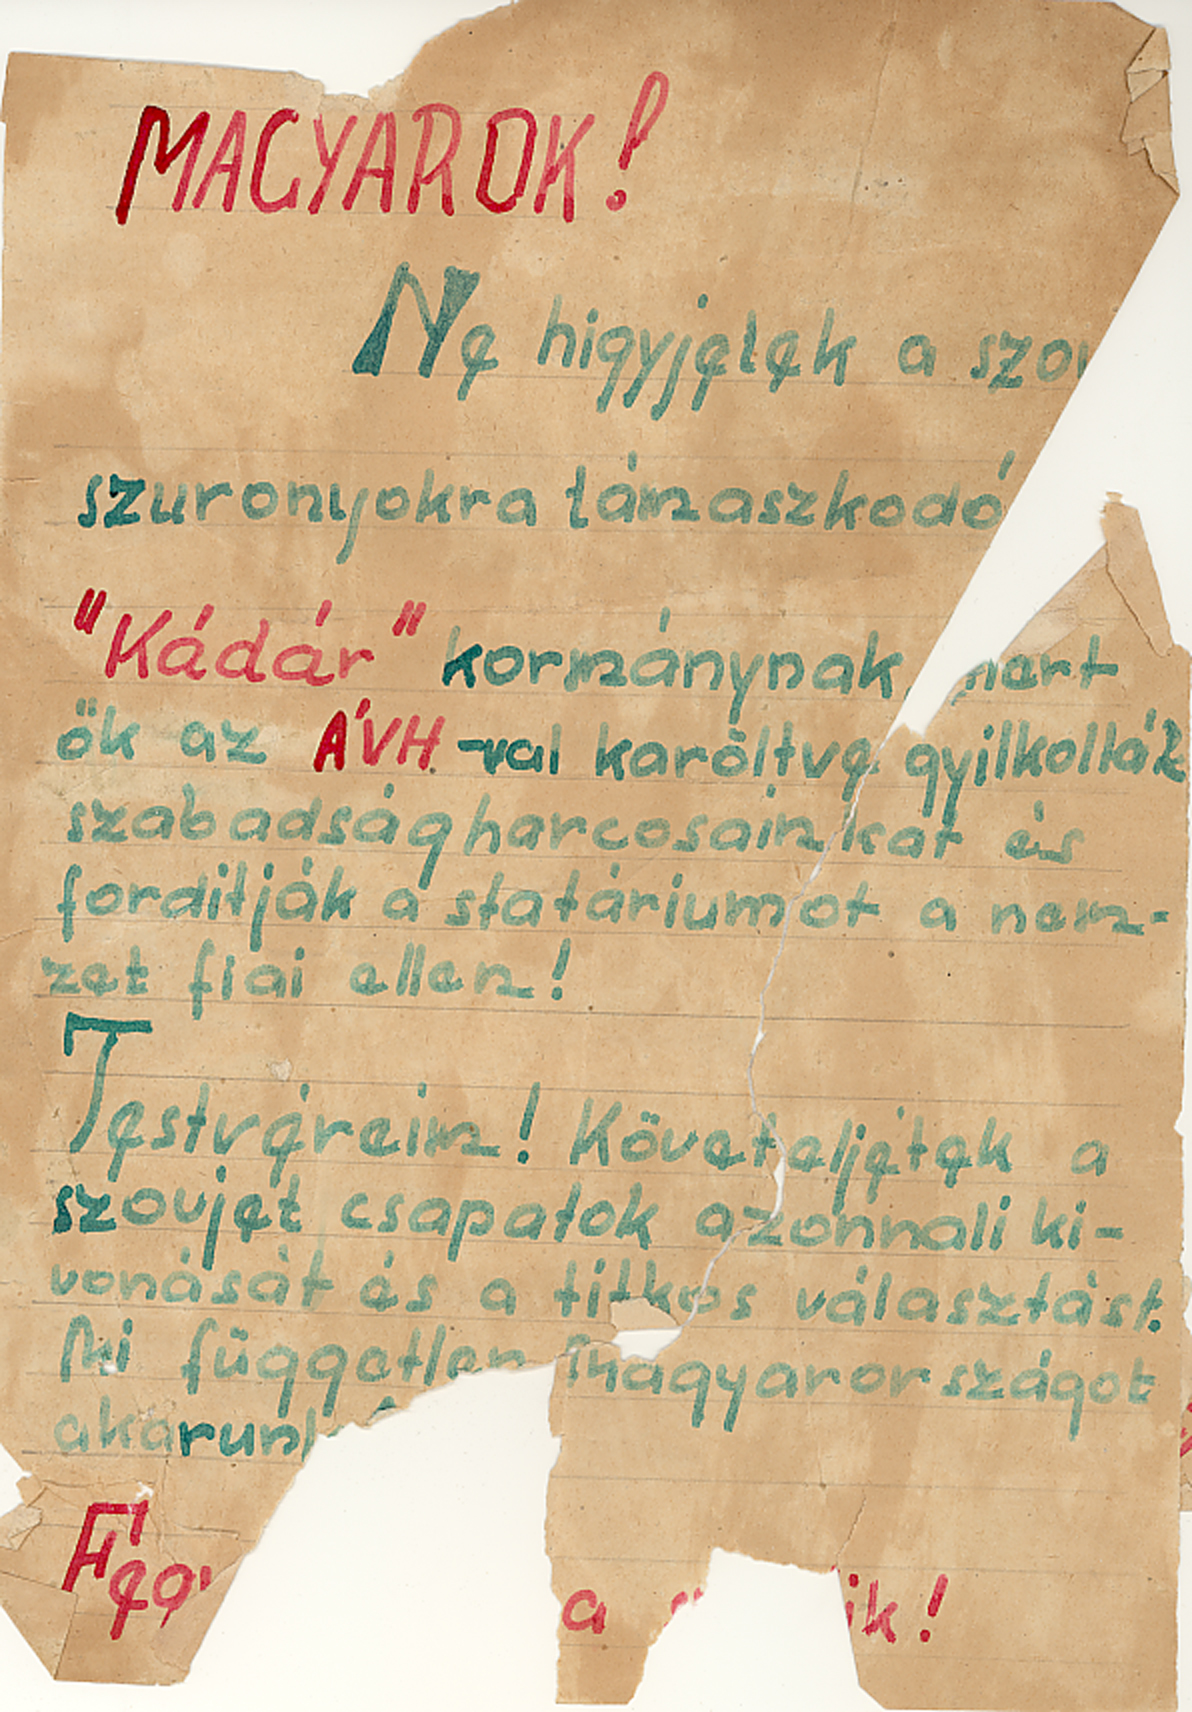 MAGYAROK!
Ne higyjetek a
szuronyokra támaszkodó
"Kádár" kormánynak, mert
ők az ÁVH-val karöltve gyilkolták
szabadságharcosainkat és
forditják a statáriumot a nem-
zet fiai ellen!
Testvéreim! Követeljétek a
szovjet csapatok azonnali ki-
vonását és a titkos választást.
Mi független Magyarországot
akarunk
a